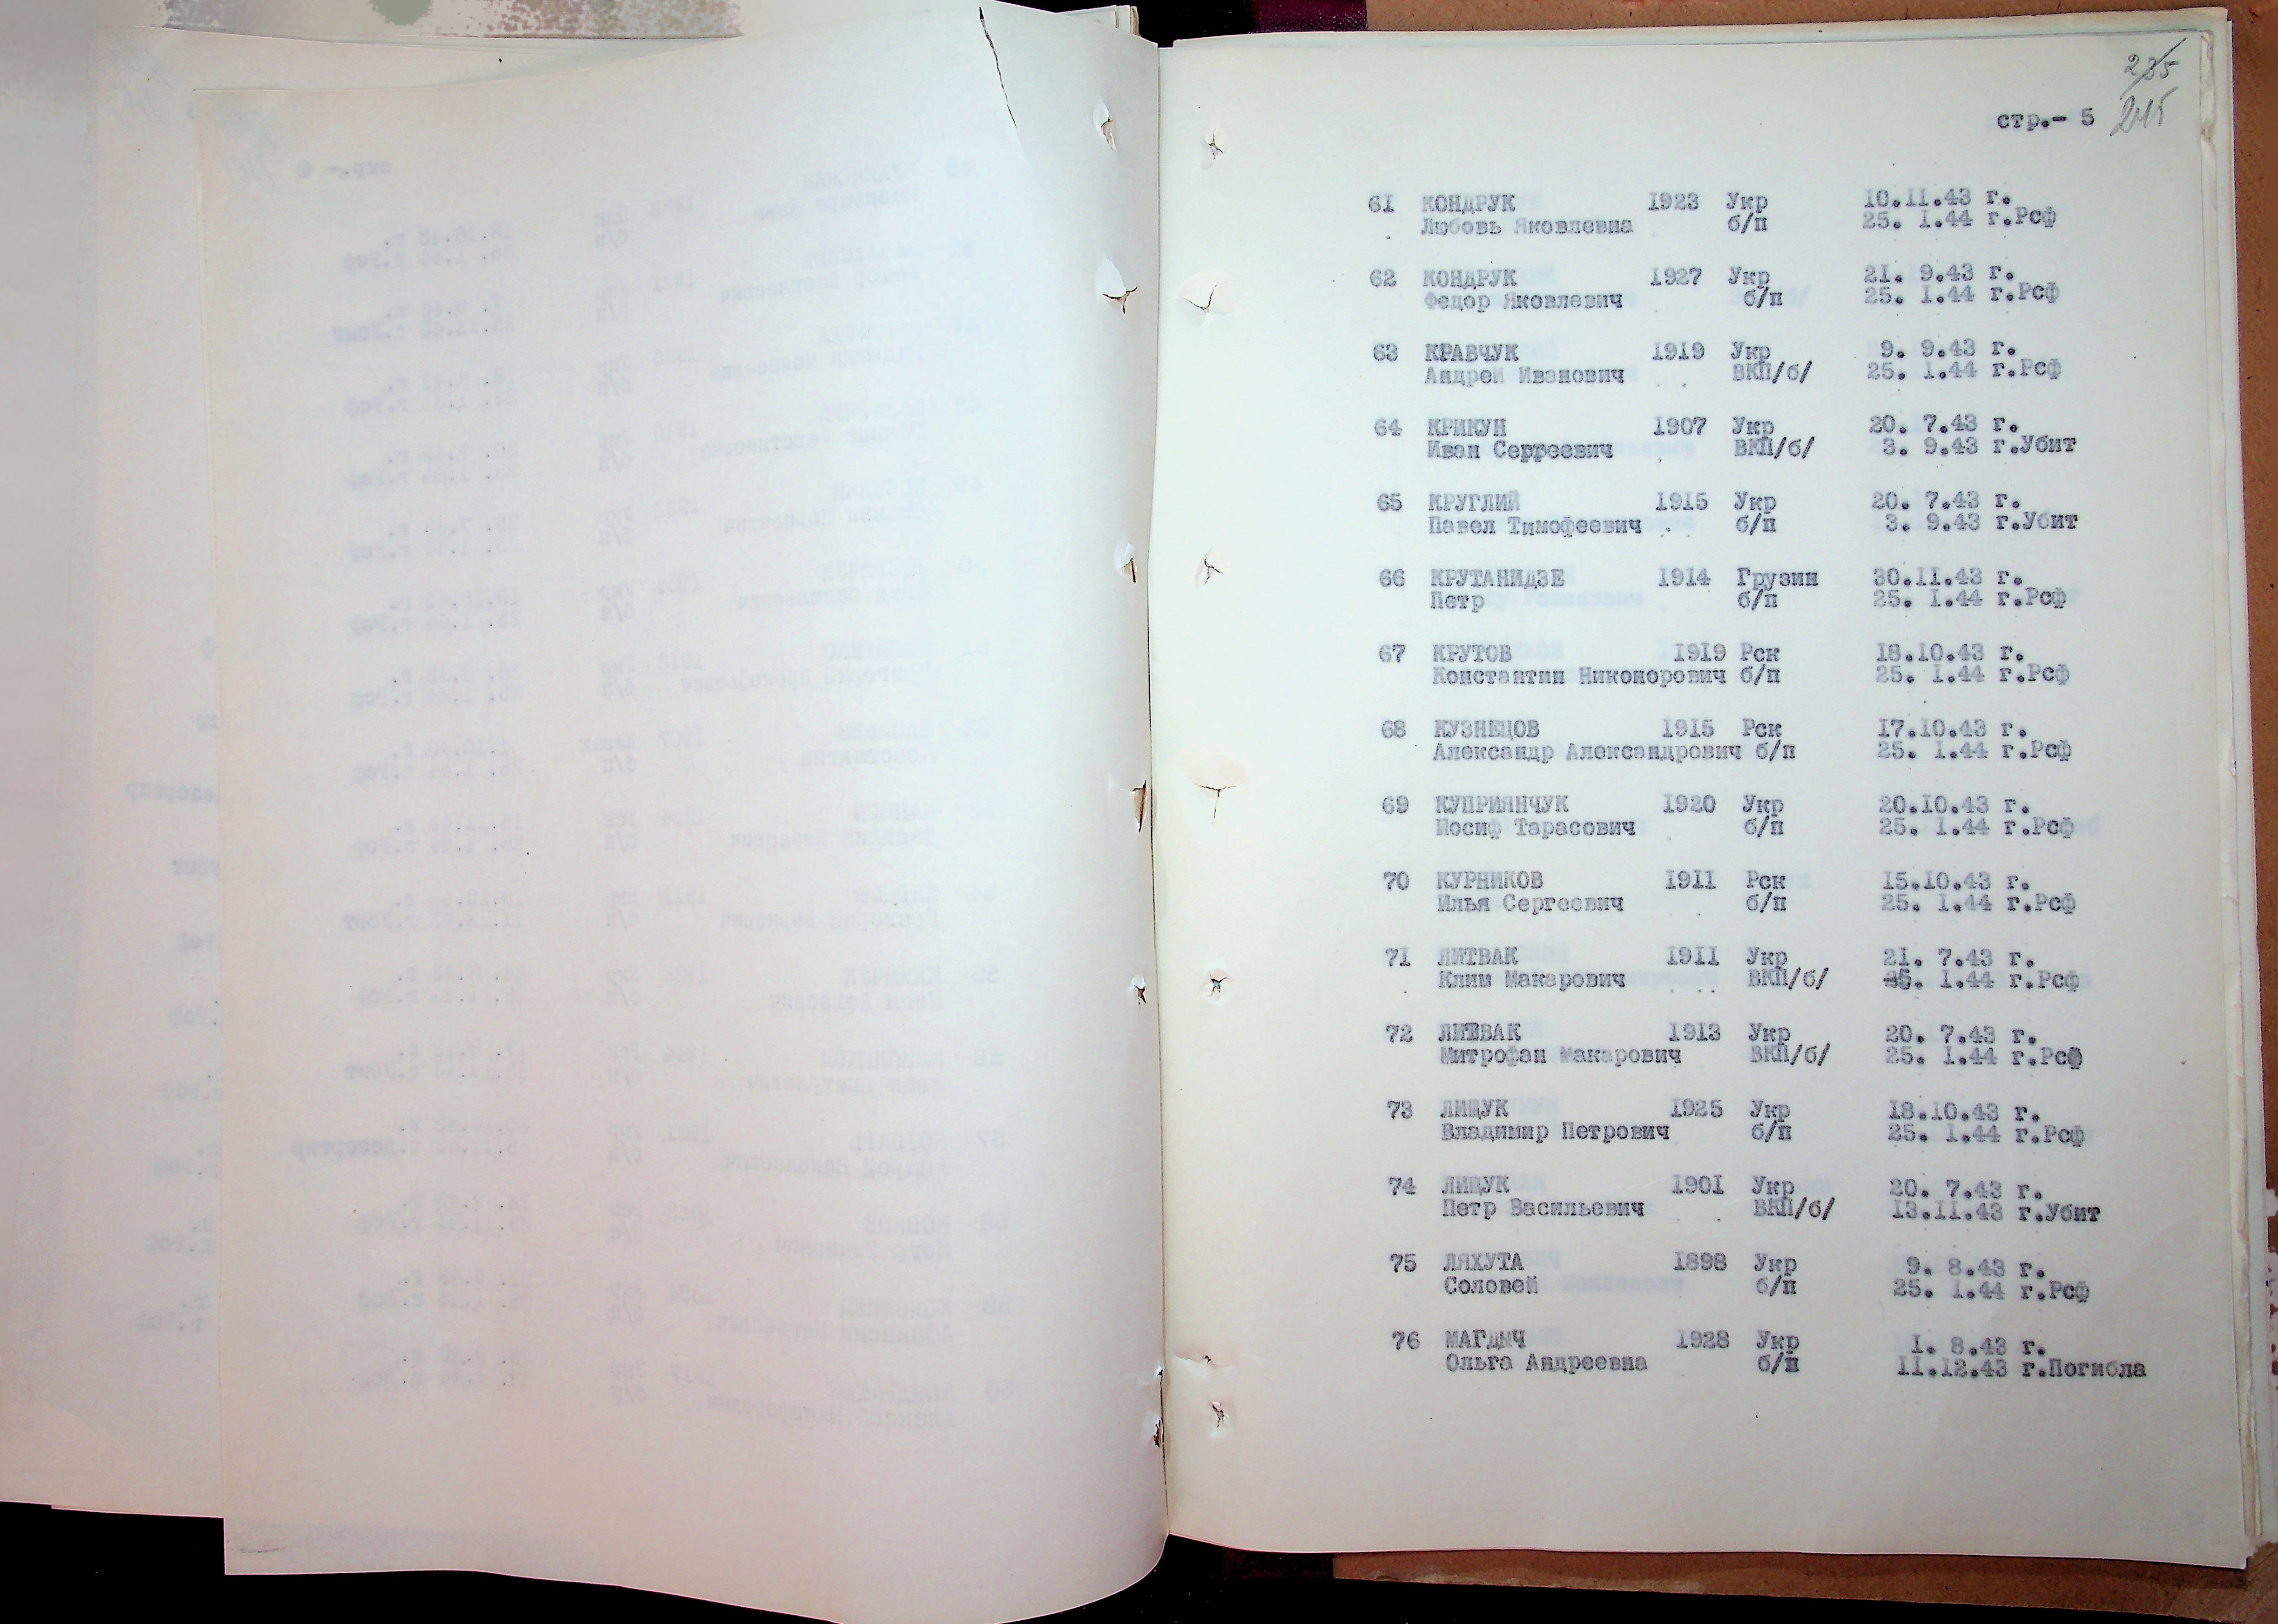 235
215
стр.- 5
61 КОНДРУК 1923 Укр 10.11.43 г.
Любовь Яковлевна б/п 25. 1.44 г.Рсф
62 КОНДРУК 1927 Укр 21. 9.43 г.
Федор Яковлевич б/п 25. 1.44 г.Рсф
63 КРАВЧУК 1919 Укр 9. 9.43 г.
Андрей Иванович ВКП/б/ 25. 1.44 г.Рсф
64 КРИКУН 1907 Укр 20. 7.43 г.
Иван Серреевич ВКП/б/ 3. 9.43 г.Убит
65 КРУГЛИЙ 1915 Укр 20. 7.43 г.
Павел Тимофеевич б/п 3. 9.43 г.Убит
66 КРУТАНИДЗЕ 1914 Грузин 30.11.43 г.
Петр б/п 25. 1.44 г.Рсф
67 КРУТОВ 1919 Рск 18.10.43 г.
Константин Никонорович б/п 25. 1.44 г.Рсф
68 КУЗНЕЦОВ 1915 Рск 17.10.43 г.
Александр Александрович б/п 25. 1.44 г.Рсф
69 КУПРИЯНЧУК 1920 Укр 20.10.43 г.
Иосиф Тарасович б/п 25. 1.44 г.Рсф
70 КУРНИКОВ 1911 Рск 15.10.43 г.
Илья Сергеевич б/п 25. 1.44 г.Рсф
71 ЛИТВАК 1911 Укр 21. 7.43 г.
Клим Макарович ВКП/б/ 25. 1.44 г.Рсф
72 ЛИТВАК 1913 Укр 20. 7.43 г.
Митрофан Макарович ВКП/б/ 25. 1.44 г.Рсф
73 ЛИЩУК 1925 Укр 18.10.43 г.
Владимир Петрович б/п 25. 1.44 г.Рсф
74 ЛИЩУК 1901 Укр 20. 7.43 г.
Петр Васильевич ВКП/б/ 13.11.43 г.Убит
75 ЛЯХУТА 1898 Укр 9. 8.43 г.
Соловей б/п 25. 1.44 г.Рсф
76 МАГДЫЧ 1928 Укр 1. 8.43 г.
Ольга Андреевна б/п 11.12.43 г.Погибла